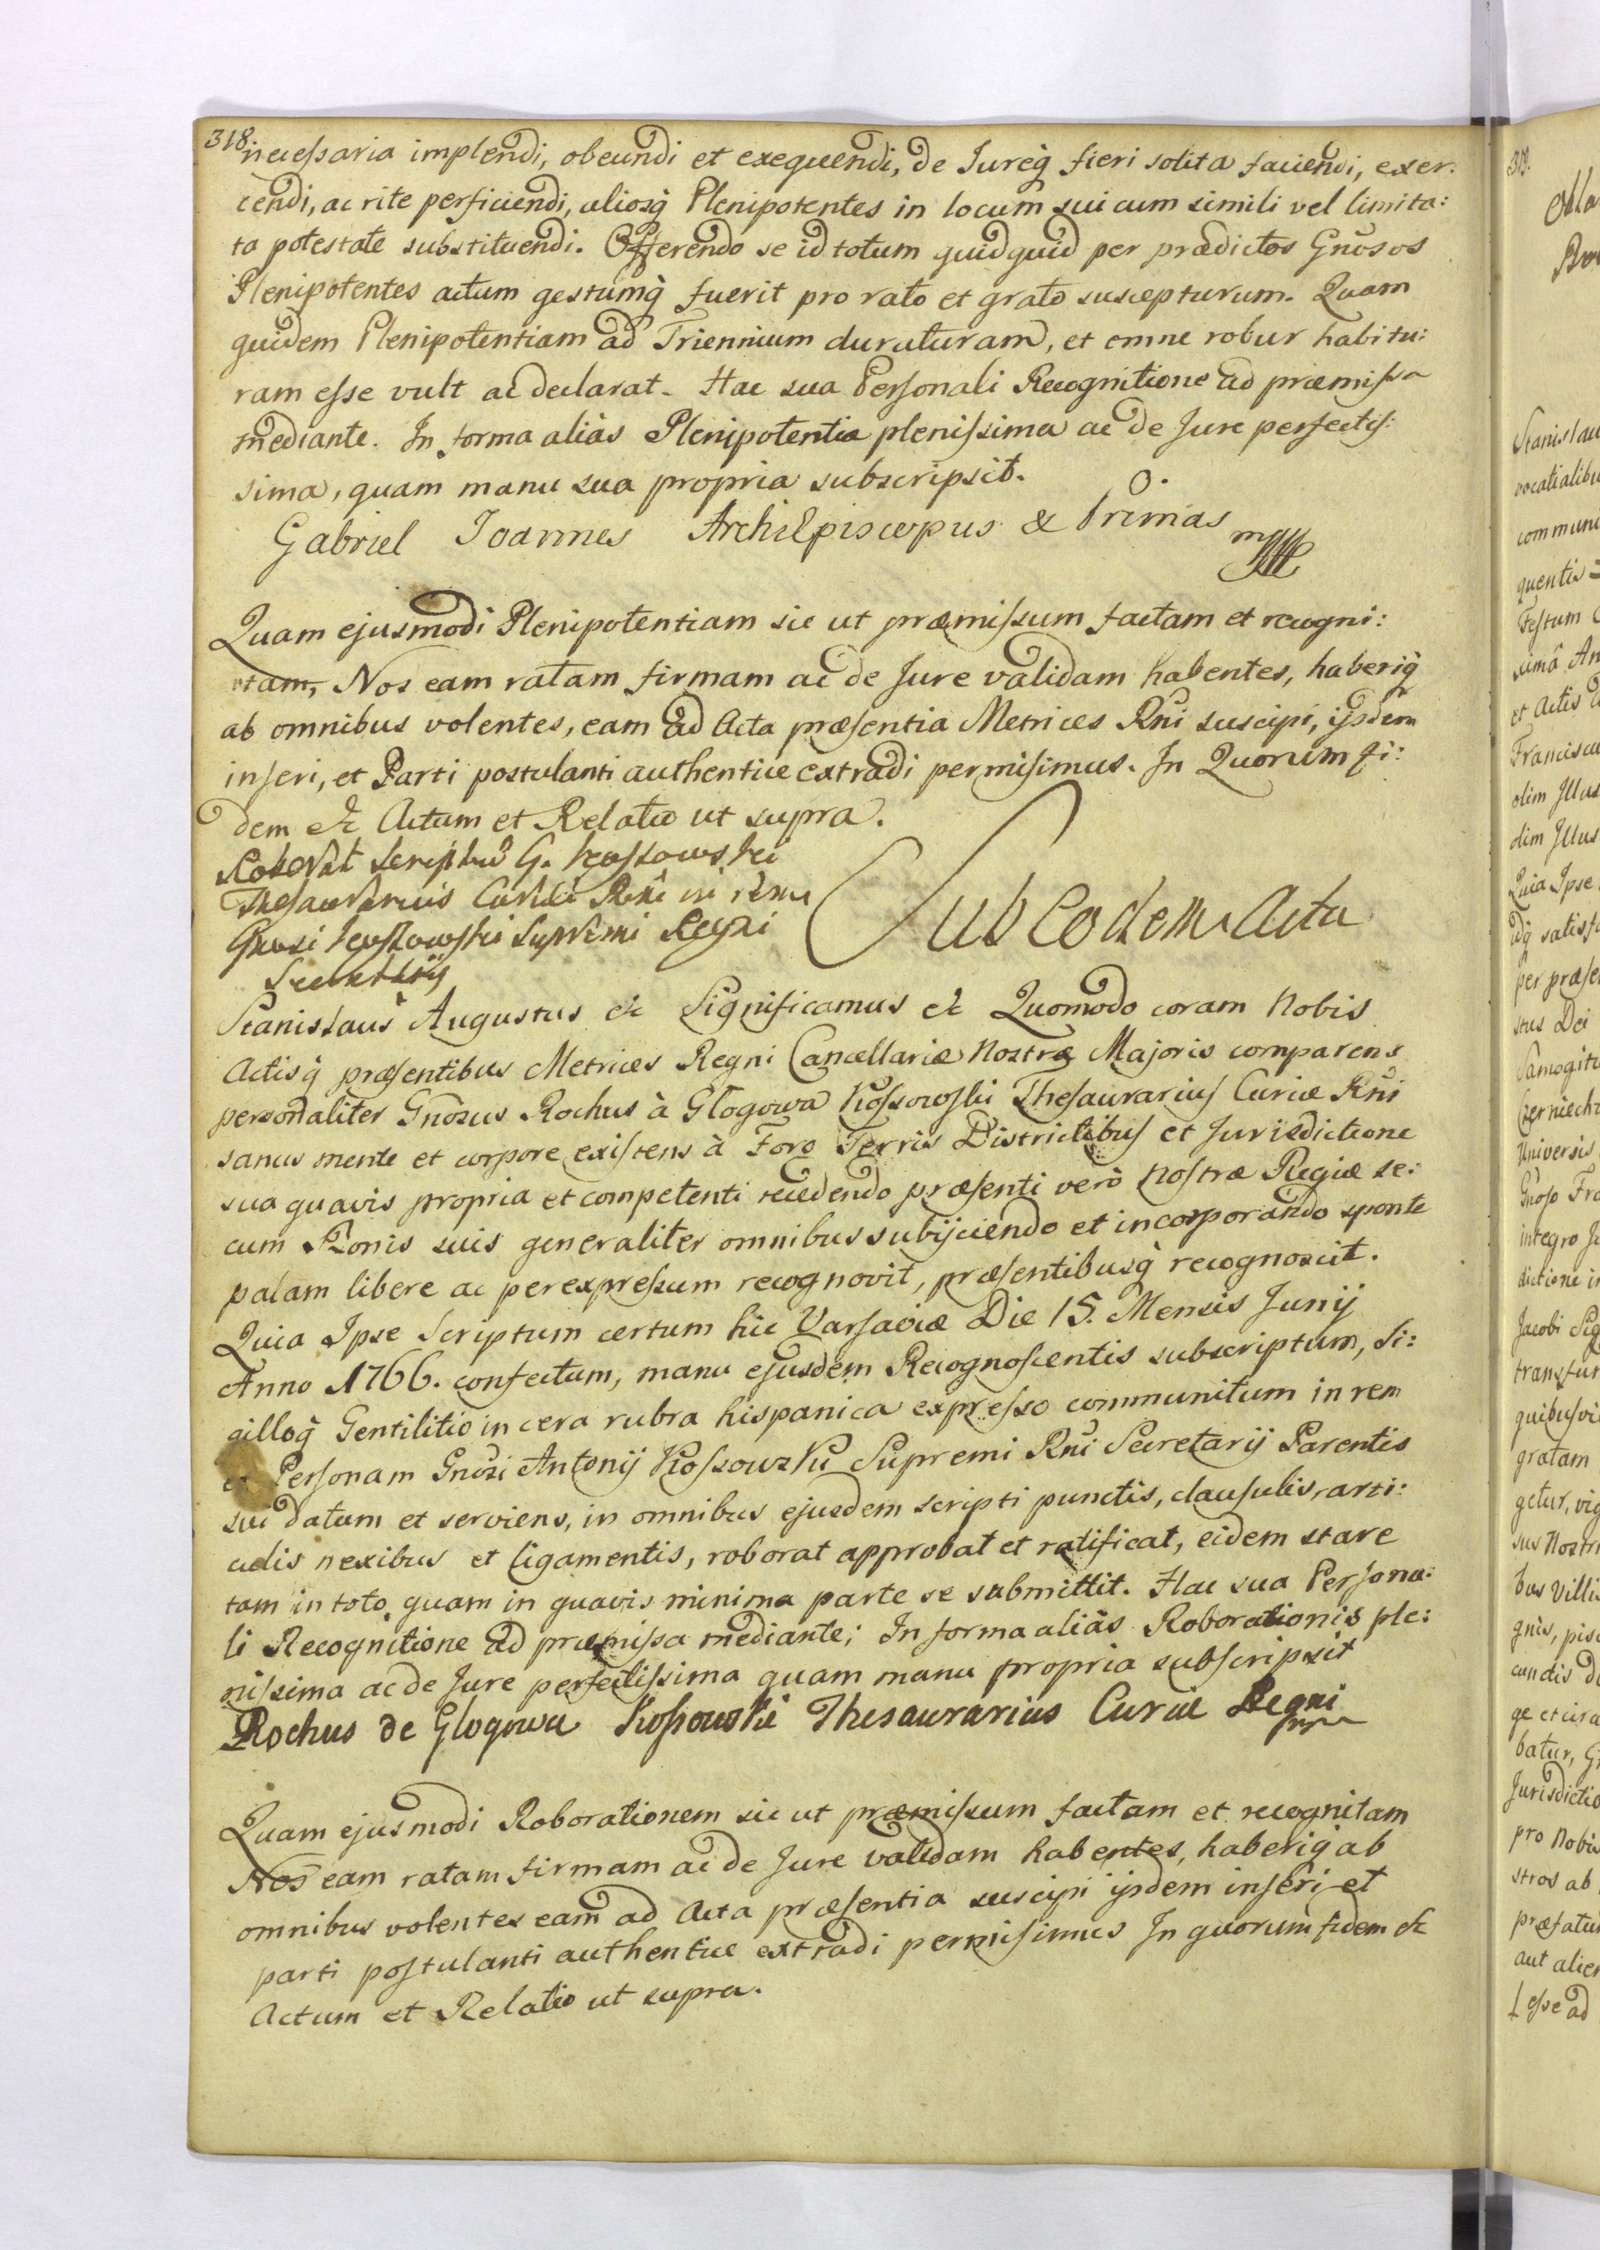 318.
necessaria implendi, obeundi et exequendi, de Jureq́ fieri solita faciendi, exer:
cendi, ac rite perficiendi, aliosq́ Plenipotentes in locum sui cum simili vel limita:
ta potestate substituendi. Offerendo se id totum quidquid per prædictos Gnõsos
Plenipotentes actum gestumq́ fuerit pro rato et grato suscepturum. Quam
quidem Plenipotentiam ad Triennium duraturam, et omne robur habitu:
ram eſse vult ac declarat. Hac sua Perſonali Recognitione ad præmiſsa
mediante. In forma aliàs Plenipotentia pleniſsima ac de Jure perfectiſ:
sima, quam manu sua propria subscripsit.
Gabriel Joannes ArchiEpiscopus & Primas
mpp
Quam ejusmodi Plenipotentiam sic ut præmiſsum factam et recogni:
tam, Nos eam ratam firmam ac de Jure validam habentes, haberiq́
ab omnibus volentes, eam ad Acta præſentia Metrices Rñi suscipi, ijsdem
inſeri, et Parti postulanti authentice extradi permiſimus. In Quorum fi:
dem &c Actum et Relatio ut supra.
Roborat Scriptum G. Koſsowski
Thesaurarius Curiæ Rñi in rem
Gnosi Koſsowski Supremi Regni
Secretarij
Sub eodem Actu
Stanislaus Augustus &c Significamus &c Quomodo coram Nobis
Actisq́ præſentibus Metrices Regni Cancellariæ Nostræ Majoris comparens
personaliter Gnõsus Rochus à Głogowa Koſsowſki Theſaurariuſ Curiæ Rñi
sanus mente et corpore exiſtens à Foro Terris Districtibuſ et Jurisdictione
sua quavis propria et competenti recedendo præſenti verò Noſtræ Regiæ se:
cum Bonis suis generaliter omnibus subijciendo et incorporando sponte
palam libere ac per expreſsum recognovit, præſentibusq́ recognoscit.
Quia Ipse Scriptum certum hic Varſaviæ Die 15. Mensis Junij
Anno 1766. confectum, manu ejusdem Recognoſcentis subscriptum, Si:
gilloq́ Gentilitio in cera rubra hispanica expreſso communitum in rem
et Perſonam Gnõsi Antonij Koſsowski Supremi Rñi Secretarij Parentis
sui datum et serviens, in omnibus ejusdem scripti punctis, clauſulis, arti:
culis nexibus et ligamentis, roborat approbat et ratificat, eidem stare
tam in toto quam in quavis minima parte se submittit. Hac sua Perſona:
li Recognitione ad præmiſsa mediante; In forma aliàs Roborationis ple:
niſsima ac de Jure perfectiſsima quam manu propria subſcripsit
Rochus de Głogowa Koſsowski Thesaurarius Curiæ Regni
mpp
Quam ejusmodi Roborationem sic ut præmiſsum factam et recognitam
Nos eam ratam firmam ac de Jure validam habentes, haberiq́ ab
omnibus volentes eam ad Acta præſentia suscipi ijsdem inſeri et
parti poſtulanti authentice extradi permiſimus In quorum fidem &c
Actum et Relatio ut supra.
319.
Stanislau
vocalibu
commun
quentis
Feſtum
et Actis
Franciscu
olim Illus
olim Illus
Quia Ipse
per præſe
stus Dei
Samogit
Czerniech
Universis
Gnõso Fra
integro Ju
dictione i
Jacobi Sig
tranſfu
quibusvi
gratam
getur, vig
sus Nostri
bus Villis
gnis, pisc
ge et circa
batur, G
Jurisdictio
pro Nobis
stros ab
præfatu
aut alie
eſse ad